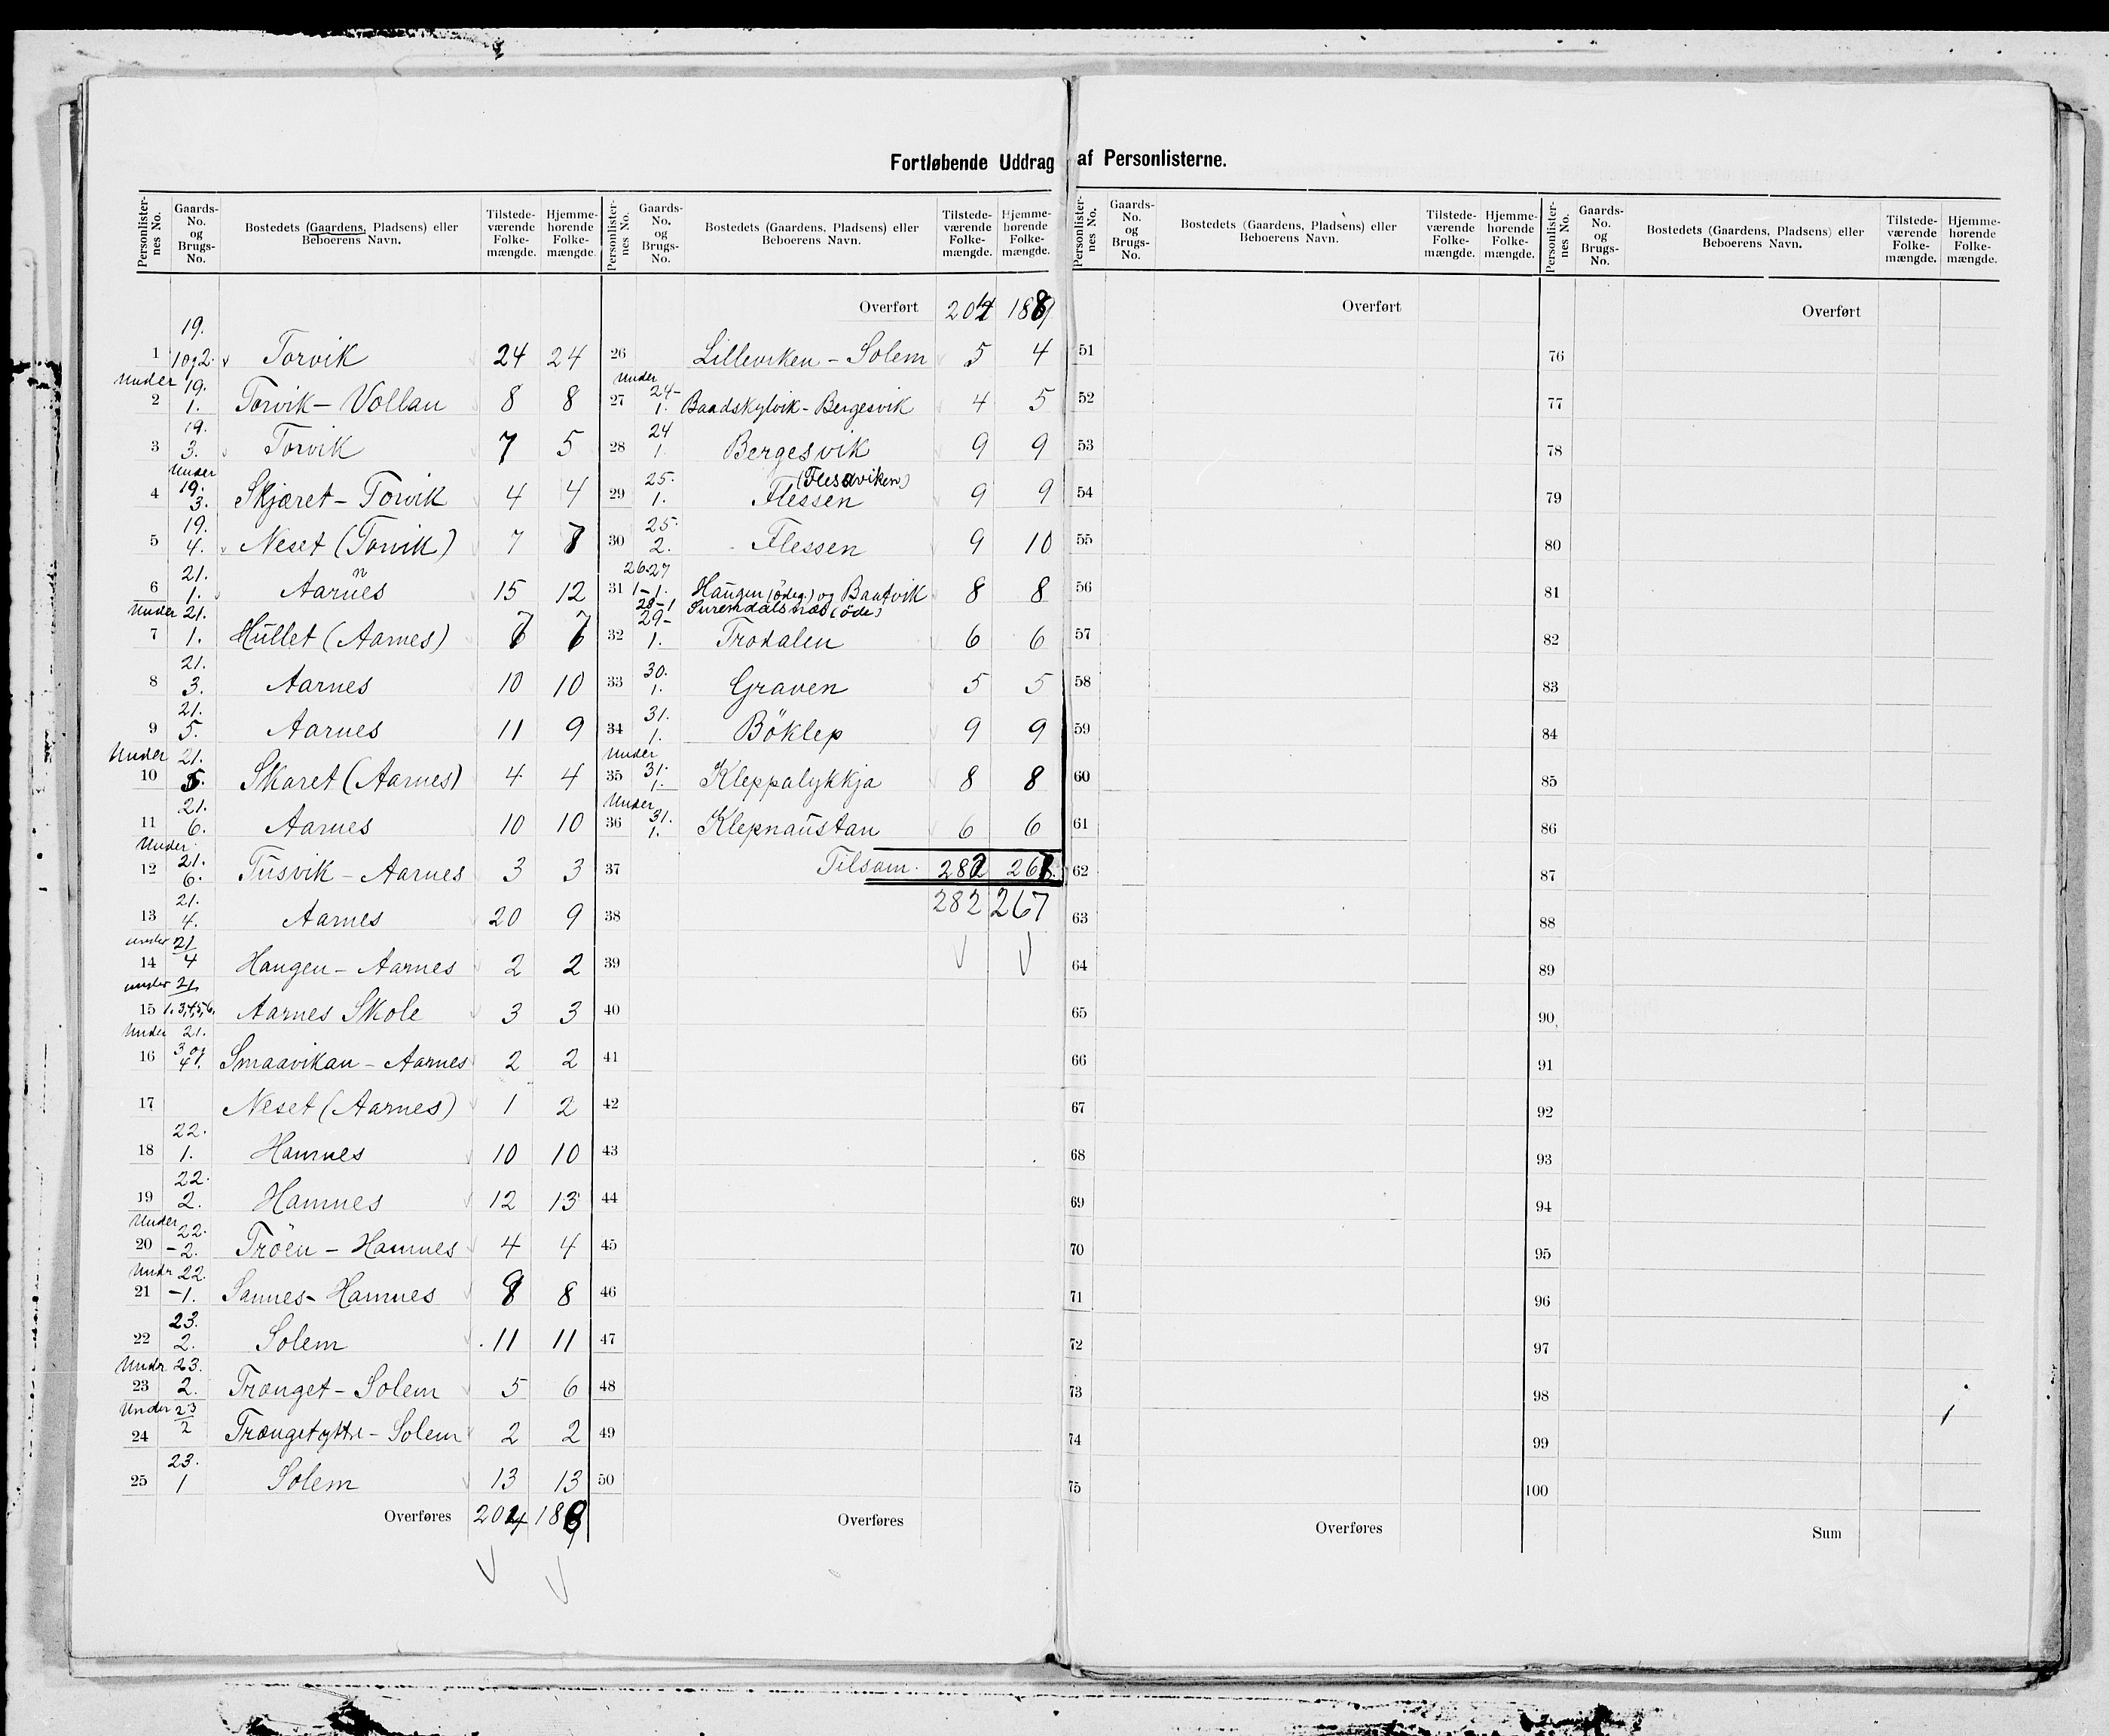 Fortløbende Uddrag af Personlisterne.
Personlister-nes No. Gaards-No. og Brugs-No. Bostedets (Gaardens, Pladsens) eller Beboerens Navn. Tilstede-værende Folke-mængde. Hjemme-hørende Folke-mængde.
1 19. 1 og 2. Torvik 24 24
2 Under 19. 1. Torvik - Vollan 8 8
3 19. 3. Torvik 7 5
4 Under 19. 3. Skjæret - Torvik 4 4
5 19. 4. Neset (Torvik) 7
6 21. 1. Aarnes 15 12
7 Under 21. 1. Hullet (Aarnes) 7 7
8 21. 3. Aarnes 10 10
9 21. 5. Aarnes 11 9
10 Under 21. 5. Skaret (Aarnes) 4 4
11 21. 6. Aarnes 10 10
12 Under 21. 6. Tusvik - Aarnes 3 3
13 21. 4. Aarnes 20 9
14 under 21 4 Haugen - Aarnes 2 2
15 under 21 1. 3, 4, 5, 6. Aarnes Skole 3 3
16 Under 21. 3 og 4. Smaavikan - Aarnes 2 2
17 Neset (Aarnes) 1 2
18 22. 1. Hamnes 10 10
19 22. 2. Hamnes 12 13
20 Under 22. - 2. Tröen - Hamnes 4 4
21 Undr 22. - 1. Sannes - Hamnes 8
22 23. 2. Solem 11 11
23 Undr 23. 2. Trænget - Solem 5 6
24 Under 23 2 Trængetyttre - Solem 2 2
25 23. 1 Solem 13 13
Overføres 204
Personlister-nes No. Gaards-No. og Brugs-No. Bostedets (Gaardens, Pladsens) eller Beboerens Navn. Tilstede-værende Folke-mængde. Hjemme-hørende Folke-mængde.
Overført 204
26 Lilleviken - Solem 5 4
27 Under 24- 1. Baadskylvik - Bergesvik 4 5
28 24 1. Bergesvik 9 9
29 25. 1. Flessen (Flesaviken) 9 9
30 25. 2. Flessen 9 10
31 26.27 1-1. Haugen (ödeg.) og Bautvik 8 8
28-1 Surendalsnæs (öde)
32 29- 1. Trodalen 6 6
33 30. 1. Graven 5 5
34 31. 1. Böklep 9 9
35 Under 31. 1. Kleppalykkja 8 8
36 Under 31. 1. Klepnaustan 6 6
37 Tilsam. 282 267
38 282 267
39
40
41
42
43
44
45
46
47
48
49
50
Overføres
Personlister-nes No. Gaards-No. og Brugs-No. Bostedets (Gaardens, Pladsens) eller Beboerens Navn. Tilstede-værende Folke-mængde. Hjemme-hørende Folke-mængde.
Overført
51
52
53
54
55
56
57
58
59
60
61
62
63
64
65
66
67
68
69
70
71
72
73
74
75
Overføres
Personlister-nes No. Gaards-No. og Brugs-No. Bostedets (Gaardens, Pladsens) eller Beboerens Navn. Tilstede-værende Folke-mængde. Hjemme-hørende Folke-mængde.
Overført
76
77
78
79
80
81
82
83
84
85
86
87
88
89
90
91
92
93
94
95
96
97
98
99
100
Sum